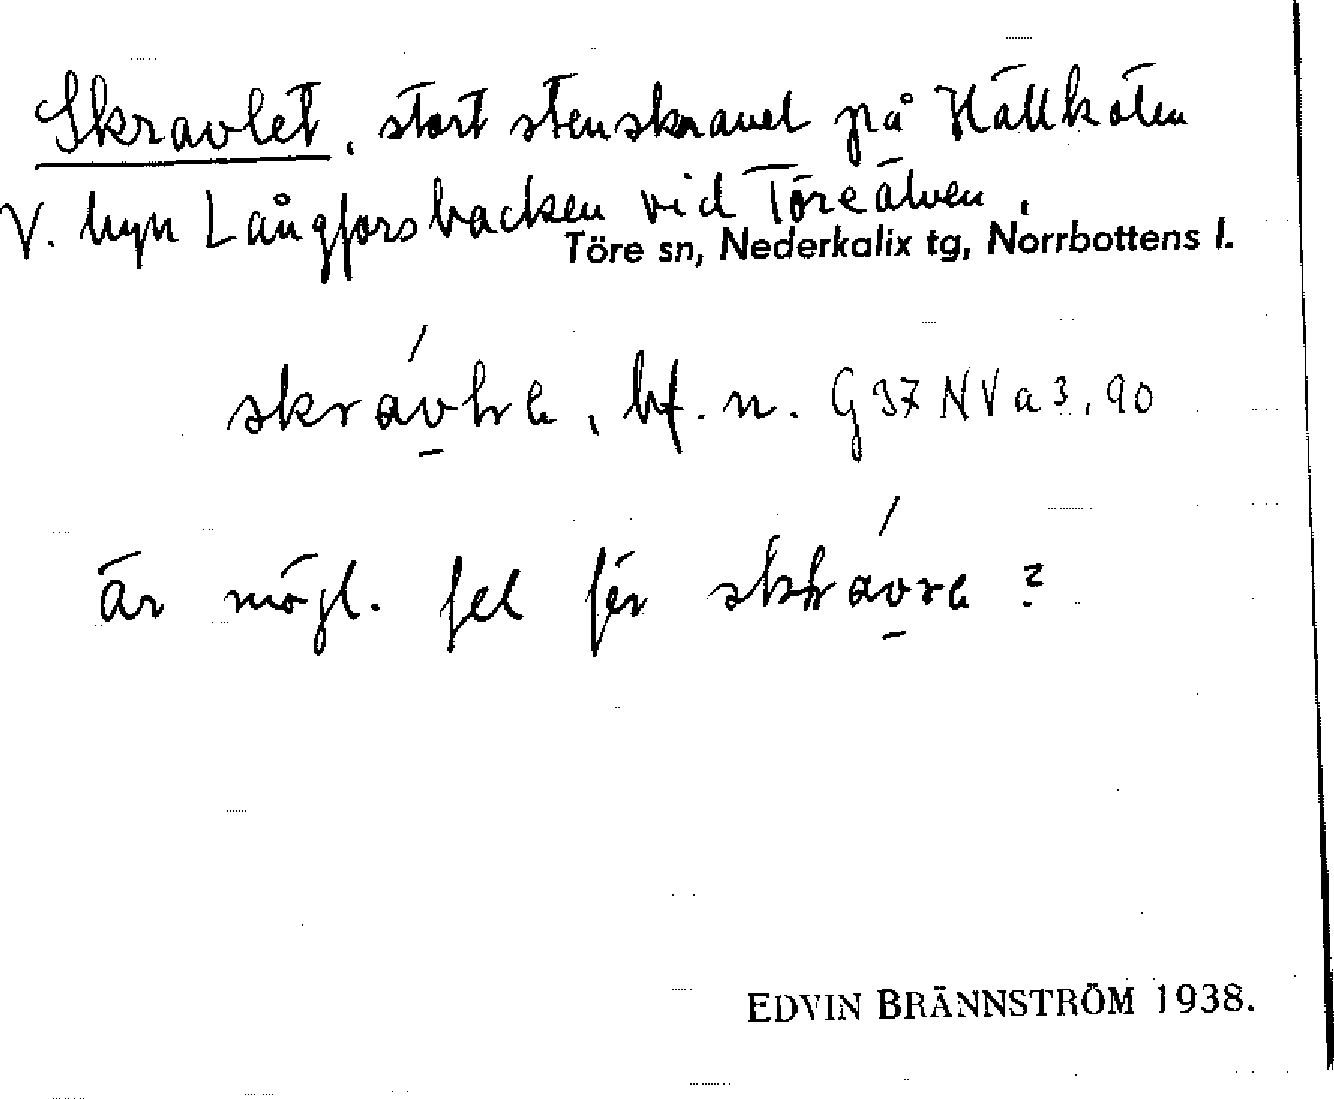 Skravlet, stort stenskravel på Hällkölen
V. byn Långforsbacken vid Töreälven.
Töre sn, Nederkalix tg, Norrbottens l.
bf. n. G 37 NV a 3, 90
är mögl. fel för ?
EDVIN BRÄNNSTRÖM 1938.